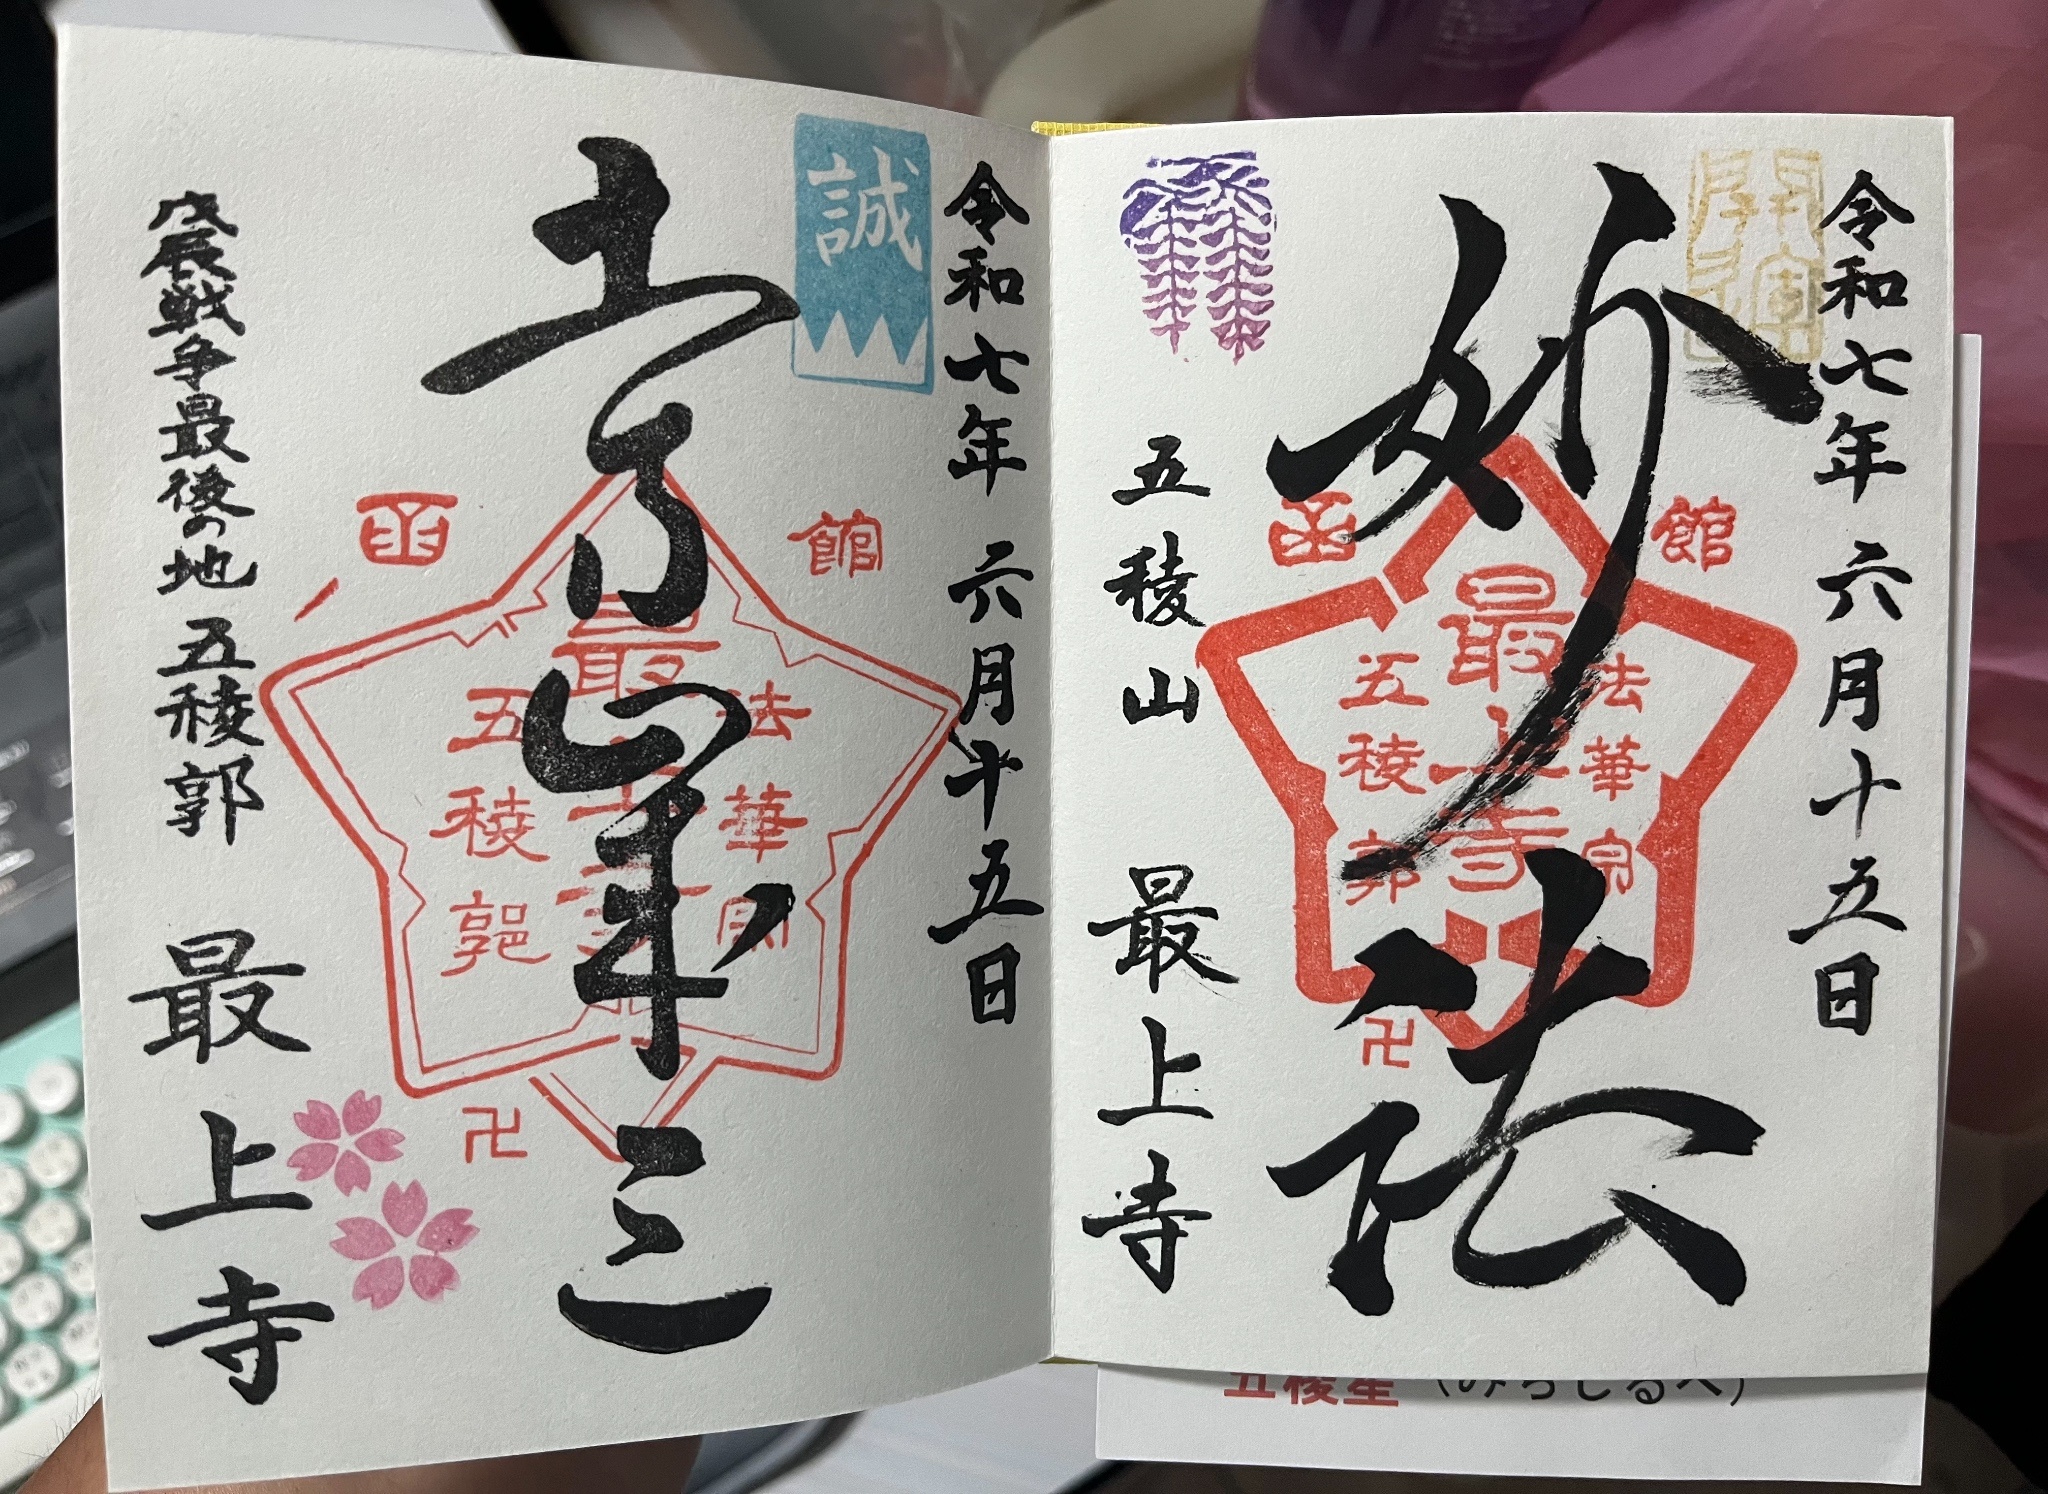 令和七年 六月十五日
妙法
函館
法華宗
最上寺
五稜郭
卍
五稜山 最上寺
五稜星(みちしるべ)
令和七年 六月十五日
誠
土方歳三
函館
法華宗
最上寺
五稜郭
卍
戊辰戦争最後の地 五稜郭 最上寺